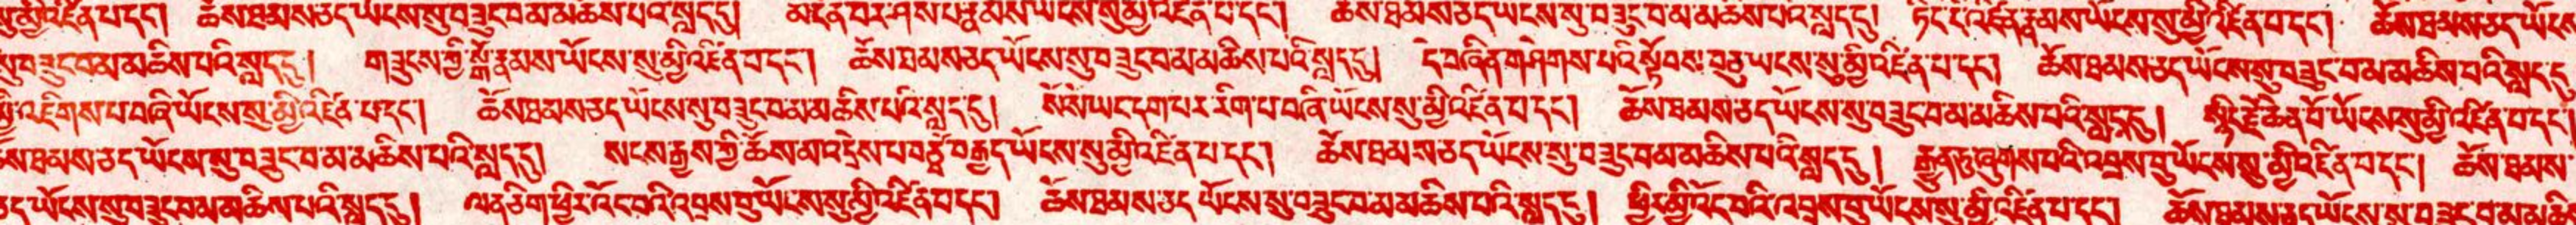 སུ་མྱི་འཛིན་པ་དང༌། ཆོས་ཐམས་ཅད་ཡོངས་སུ་བཟུང་བ་མ་མཆིས་པའི་སླད་དུ། མངོན་བར་ཤེས་པ་རྣམས་ཡོངས་སུ་མྱི་འཛིན་པ་དང༌། ཆོས་ཐམས་ཅད་ཡོངས་སུ་བཟུང་བ་མ་མཆིས་པའི་སླད་དུ། ཏིང་ངེ་འཛིན་རྣམས་ཡོངས་སུ་མྱི་འཛིན་པ་དང༌། ཆོས་ཐམས་ཅད་ཡོངས་
སུ་བཟུང་བ་མ་མཆིས་པའི་སླད་དུ། གཟུངས་ཀྱི་སྒོ་རྣམས་ཡོངས་སུ་མྱི་འཛིན་པ་དང༌། ཆོས་ཐམས་ཅད་ཡོངས་སུ་བཟུང་བ་མ་མཆིས་པའི་སླད་དུ། དེ་བཞིན་གཤེགས་པའི་སྟོབས་བཅུ་ཡོངས་སུ་མྱི་འཛིན་པ་དང༌། ཆོས་ཐམས་ཅད་ཡོངས་སུ་བཟུང་བ་མ་མཆིས་པའི་སླད་དུ
མྱི་འཇིགས་པ་བཞི་ཡོངས་སུ་མྱི་འཛིན་པ་དང༌། ཆོས་ཐམས་ཅད་ཡོངས་སུ་བཟུང་བ་མ་མཆིས་པའི་སླད་དུ། སོ་སོ་ཡང་དག་པར་རིག་པ་བཞི་ཡོངས་སུ་མྱི་འཛིན་པ་དང༌། ཆོས་ཐམས་ཅད་ཡོངས་སུ་བཟུང་བ་མ་མཆིས་པའི་སླད་དུ། སྙིང་རྗེ་ཆེན་པོ་ཡོངས་སུ་མྱི་འཛིན་པ་དང༌།
ཆོས་ཐམས་ཅད་ཡོངས་སུ་བཟུང་བ་མ་མཆིས་པའི་སླད་དུ། སངས་རྒྱས་ཀྱི་ཆོས་མ་འདྲེས་པ་བཅོ་བརྒྱད་ཡོངས་སུ་མྱི་འཛིན་པ་དང༌། ཆོས་ཐམས་ཅད་ཡོངས་སུ་བཟུང་བ་མ་མཆིས་པའི་སླད་དུ། རྒྱུན་ཏུ་ཞུགས་པའི་འབྲས་བུ་ཡོངས་སུ་མྱི་འཛིན་པ་དང༌། ཆོས་ཐམས་
ཅད་ཡོངས་སུ་བཟུང་བ་མ་མཆིས་པའི་སླད་དུ། ལན་ཅིག་ཕྱིར་འོང་བའི་འབྲས་བུ་ཡོངས་སུ་མྱི་འཛིན་པ་དང༌། ཆོས་ཐམས་ཅད་ཡོངས་སུ་བཟུང་བ་མ་མཆིས་པའི་སླད་དུ། ཕྱིར་མྱི་འོང་བའི་འབྲས་བུ་ཡོངས་སུ་མྱི་འཛིན་པ་དང༌། ཆོས་ཐམས་ཅད་ཡོངས་སུ་བཟུང་བ་མ་མཆི